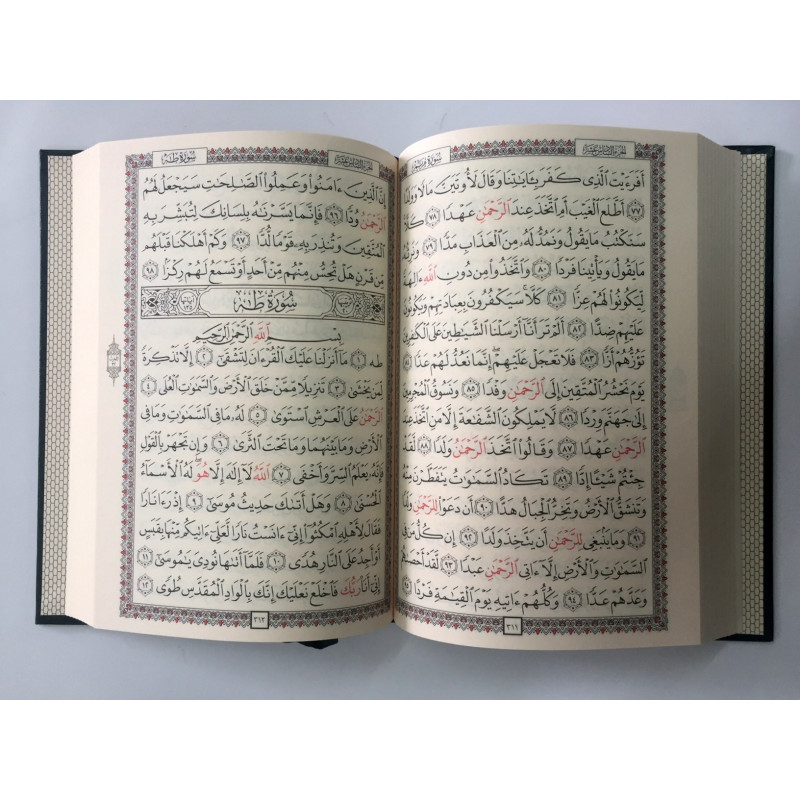 سورة مريم
الجزء السادس عشر
أَفَرَءَيْتَ الَّذِى كَفَرَ بِـَٔايَـٰتِنَا وَقَالَ لَأُوتَيَنَّ مَالًا وَوَلَدًا
٧٧ أَطَّلَعَ الْغَيْبَ أَمِ اتَّخَذَ عِندَ الرَّحْمَـٰنِ عَهْدًا ٧٨ كَلَّا
سَنَكْتُبُ مَا يَقُولُ وَنَمُدُّ لَهُ مِنَ الْعَذَابِ مَدًّا ٧٩ وَنَرِثُهُ
مَا يَقُولُ وَيَأْتِينَا فَرْدًا ٨٠ وَاتَّخَذُوا مِن دُونِ اللَّهِ ءَالِهَةً
لِّيَكُونُوا لَهُمْ عِزًّا ٨١ كَلَّا سَيَكْفُرُونَ بِعِبَادَتِهِمْ وَيَكُونُونَ
عَلَيْهِمْ ضِدًّا ٨٢ أَلَمْ تَرَ أَنَّا أَرْسَلْنَا الشَّيَـٰطِينَ عَلَى الْكَـٰفِرِينَ
تَؤُزُّهُمْ أَزًّا ٨٣ فَلَا تَعْجَلْ عَلَيْهِمْ إِنَّمَا نَعُدُّ لَهُمْ عَدًّا ٨٤
يَوْمَ نَحْشُرُ الْمُتَّقِينَ إِلَى الرَّحْمَـٰنِ وَفْدًا ٨٥ وَنَسُوقُ الْمُجْرِمِينَ
إِلَىٰ جَهَنَّمَ وِرْدًا ٨٦ لَّا يَمْلِكُونَ الشَّفَـٰعَةَ إِلَّا مَنِ اتَّخَذَ عِندَ
الرَّحْمَـٰنِ عَهْدًا ٨٧ وَقَالُوا اتَّخَذَ الرَّحْمَـٰنُ وَلَدًا ٨٨ لَّقَدْ
جِئْتُمْ شَيْـًٔا إِدًّا ٨٩ تَكَادُ السَّمَـٰوَٰتُ يَتَفَطَّرْنَ مِنْهُ
وَتَنشَقُّ الْأَرْضُ وَتَخِرُّ الْجِبَالُ هَدًّا ٩٠ أَن دَعَوْا لِلرَّحْمَـٰنِ وَلَدًا
٩١ وَمَا يَنبَغِى لِلرَّحْمَـٰنِ أَن يَتَّخِذَ وَلَدًا ٩٢ إِن كُلُّ مَن فِى
السَّمَـٰوَٰتِ وَالْأَرْضِ إِلَّا ءَاتِى الرَّحْمَـٰنِ عَبْدًا ٩٣ لَّقَدْ أَحْصَىٰهُمْ
وَعَدَّهُمْ عَدًّا ٩٤ وَكُلُّهُمْ ءَاتِيهِ يَوْمَ الْقِيَـٰمَةِ فَرْدًا ٩٥
٣١١
الجزء السادس عشر
سورة طه
إِنَّ الَّذِينَ ءَامَنُوا وَعَمِلُوا الصَّـٰلِحَـٰتِ سَيَجْعَلُ لَهُمُ
الرَّحْمَـٰنُ وُدًّا ٩٦ فَإِنَّمَا يَسَّرْنَـٰهُ بِلِسَانِكَ لِتُبَشِّرَ بِهِ
الْمُتَّقِينَ وَتُنذِرَ بِهِ قَوْمًا لُّدًّا ٩٧ وَكَمْ أَهْلَكْنَا قَبْلَهُم
مِّن قَرْنٍ هَلْ تُحِسُّ مِنْهُم مِّنْ أَحَدٍ أَوْ تَسْمَعُ لَهُمْ رِكْزًا ٩٨
سورة طه
بِسْمِ اللَّهِ الرَّحْمَـٰنِ الرَّحِيمِ
طه ١ مَا أَنزَلْنَا عَلَيْكَ الْقُرْءَانَ لِتَشْقَىٰ ٢ إِلَّا تَذْكِرَةً
لِّمَن يَخْشَىٰ ٣ تَنزِيلًا مِّمَّنْ خَلَقَ الْأَرْضَ وَالسَّمَـٰوَٰتِ الْعُلَى ٤
الرَّحْمَـٰنُ عَلَى الْعَرْشِ اسْتَوَىٰ ٥ لَهُ مَا فِى السَّمَـٰوَٰتِ وَمَا فِى
الْأَرْضِ وَمَا بَيْنَهُمَا وَمَا تَحْتَ الثَّرَىٰ ٦ وَإِن تَجْهَرْ بِالْقَوْلِ
فَإِنَّهُ يَعْلَمُ السِّرَّ وَأَخْفَى ٧ اللَّهُ لَا إِلَـٰهَ إِلَّا هُوَ لَهُ الْأَسْمَاءُ
الْحُسْنَىٰ ٨ وَهَلْ أَتَىٰكَ حَدِيثُ مُوسَىٰ ٩ إِذْ رَءَا نَارًا
فَقَالَ لِأَهْلِهِ امْكُثُوا إِنِّى ءَانَسْتُ نَارًا لَّعَلِّى ءَاتِيكُم مِّنْهَا بِقَبَسٍ
أَوْ أَجِدُ عَلَى النَّارِ هُدًى ١٠ فَلَمَّا أَتَىٰهَا نُودِىَ يَـٰمُوسَىٰ ١١
إِنِّى أَنَا رَبُّكَ فَاخْلَعْ نَعْلَيْكَ إِنَّكَ بِالْوَادِ الْمُقَدَّسِ طُوًى ١٢
٣١٢